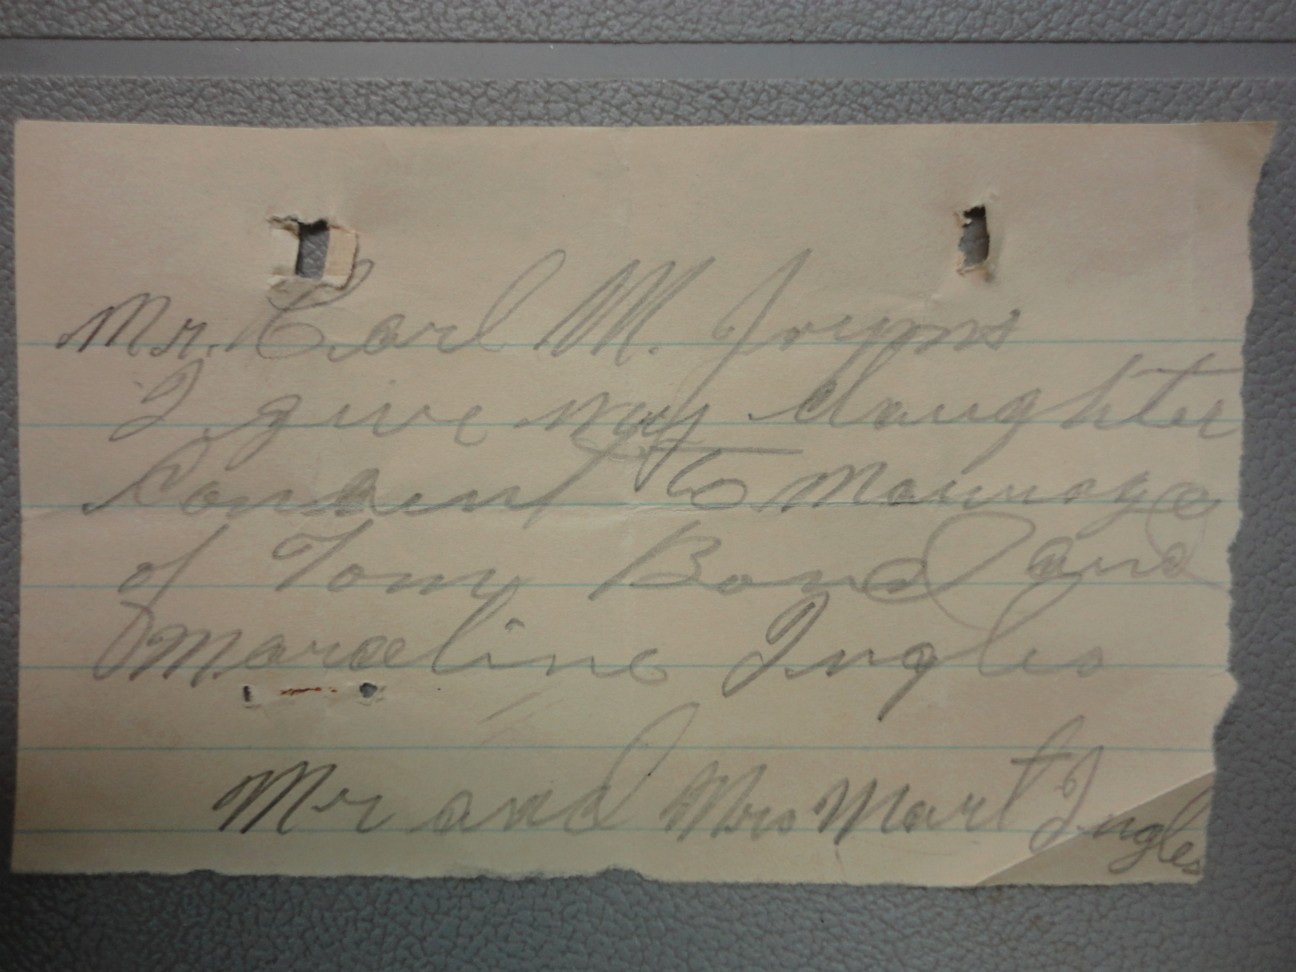 Mr. Carl M.
I give my daughter
Consent to
of Tom Bond and
Marceline Ingles
Mr and Mrs Mart Ingles